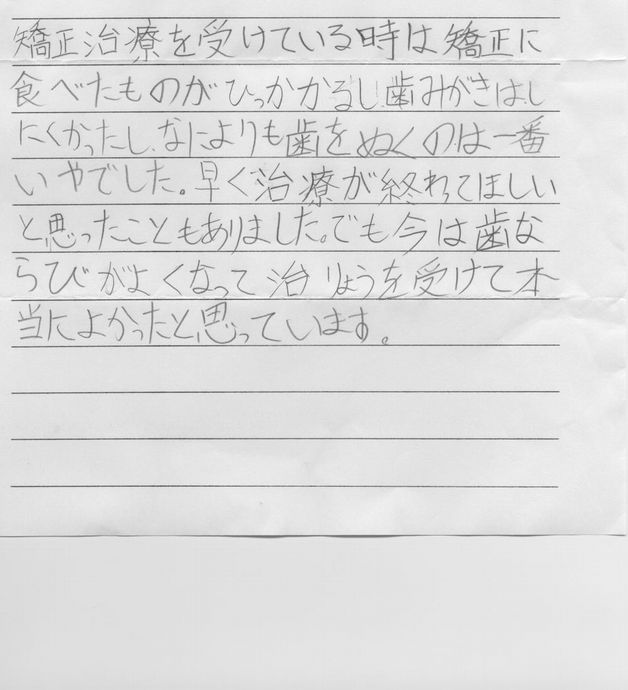 矯正治療を受けている時は矯正に
食べたものがひっかかるし歯みがきはし
にくかったし、なによりも歯をぬくのは一番
いやでした。早く治療が終わってほしい
と思ったこともありました。でも今は歯な
らびがよくなって治りょうを受けて本
当によかったと思っています。